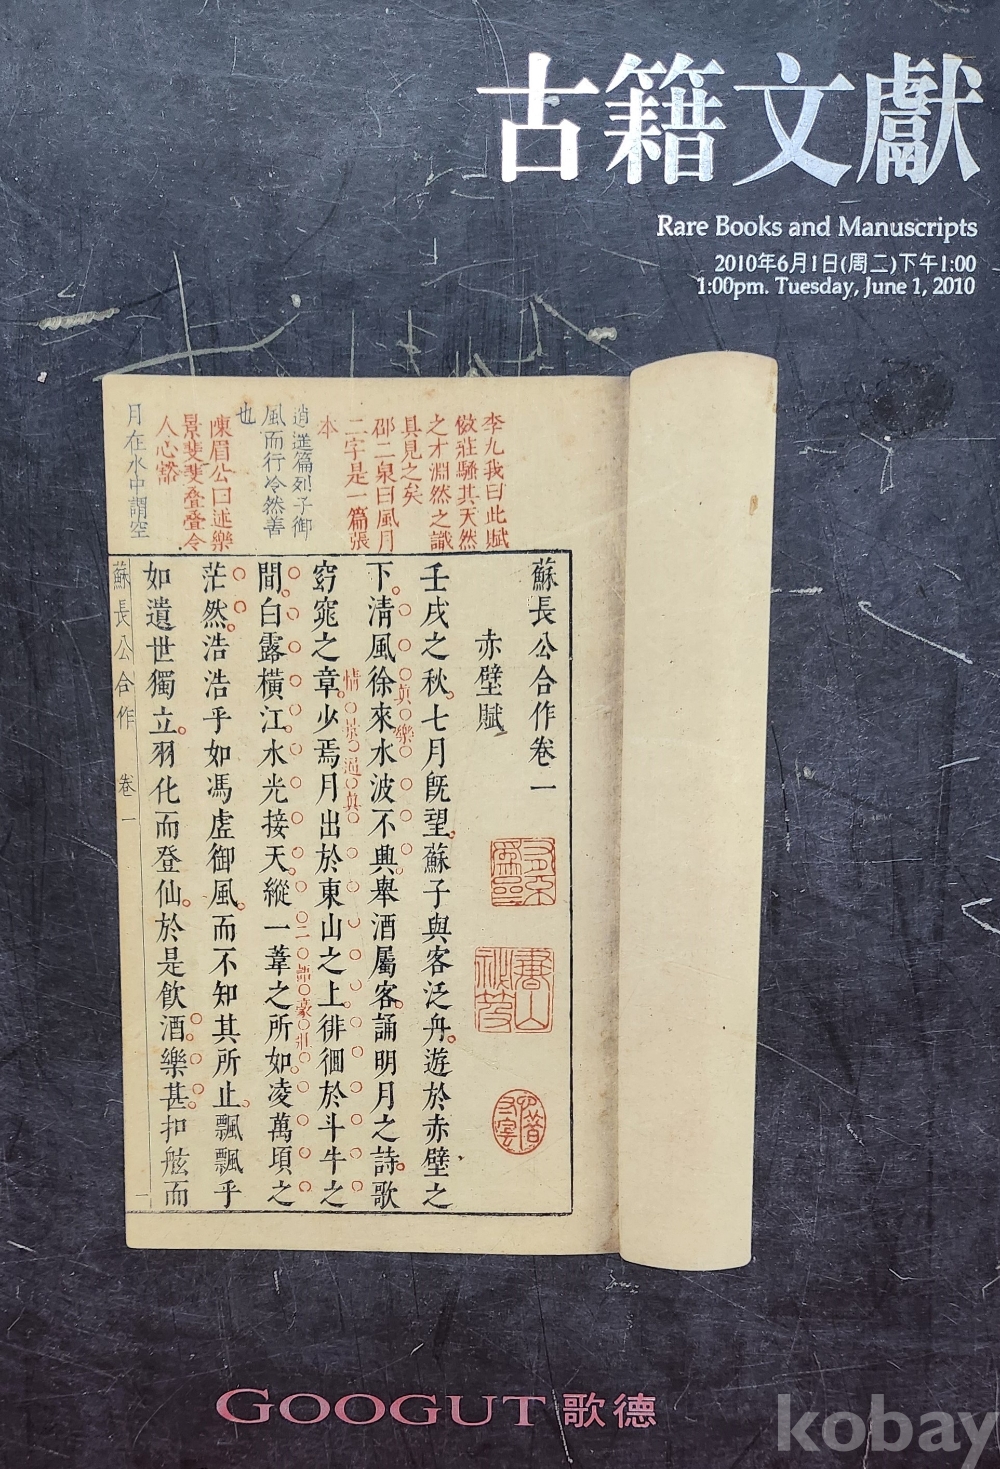 古籍文獻
Rare Books and Manuscripts
2010年6月1日(周二)下午1:00
1:00pm. Tuesday, June 1, 2010
李九我曰此賦
倣莊騷其天然
之才淵然之識
具見之矣
邵二泉曰風月
二字是一篇張
本
逍遙篇列子御
風而行冷然善
也
陳眉公曰述樂
景斐斐叠叠令
人心豁
月在水中謂空
蘇長公合作卷一
赤壁賦
壬戌之秋七月旣望蘇子與客泛舟遊於赤壁之
下清風徐來水波不興舉酒屬客誦明月之詩歌
真樂
窈窕之章少焉月出於東山之上徘徊於斗牛之
情景逼真
間白露橫江水光接天縱一葦之所如凌萬頃之
二語豪壯
茫然浩浩乎如馮虛御風而不知其所止飄飄乎
如遺世獨立羽化而登仙於是飲酒樂甚扣舷而
蘇長公合作 卷一 一
GOOGUT 歌德
kobay